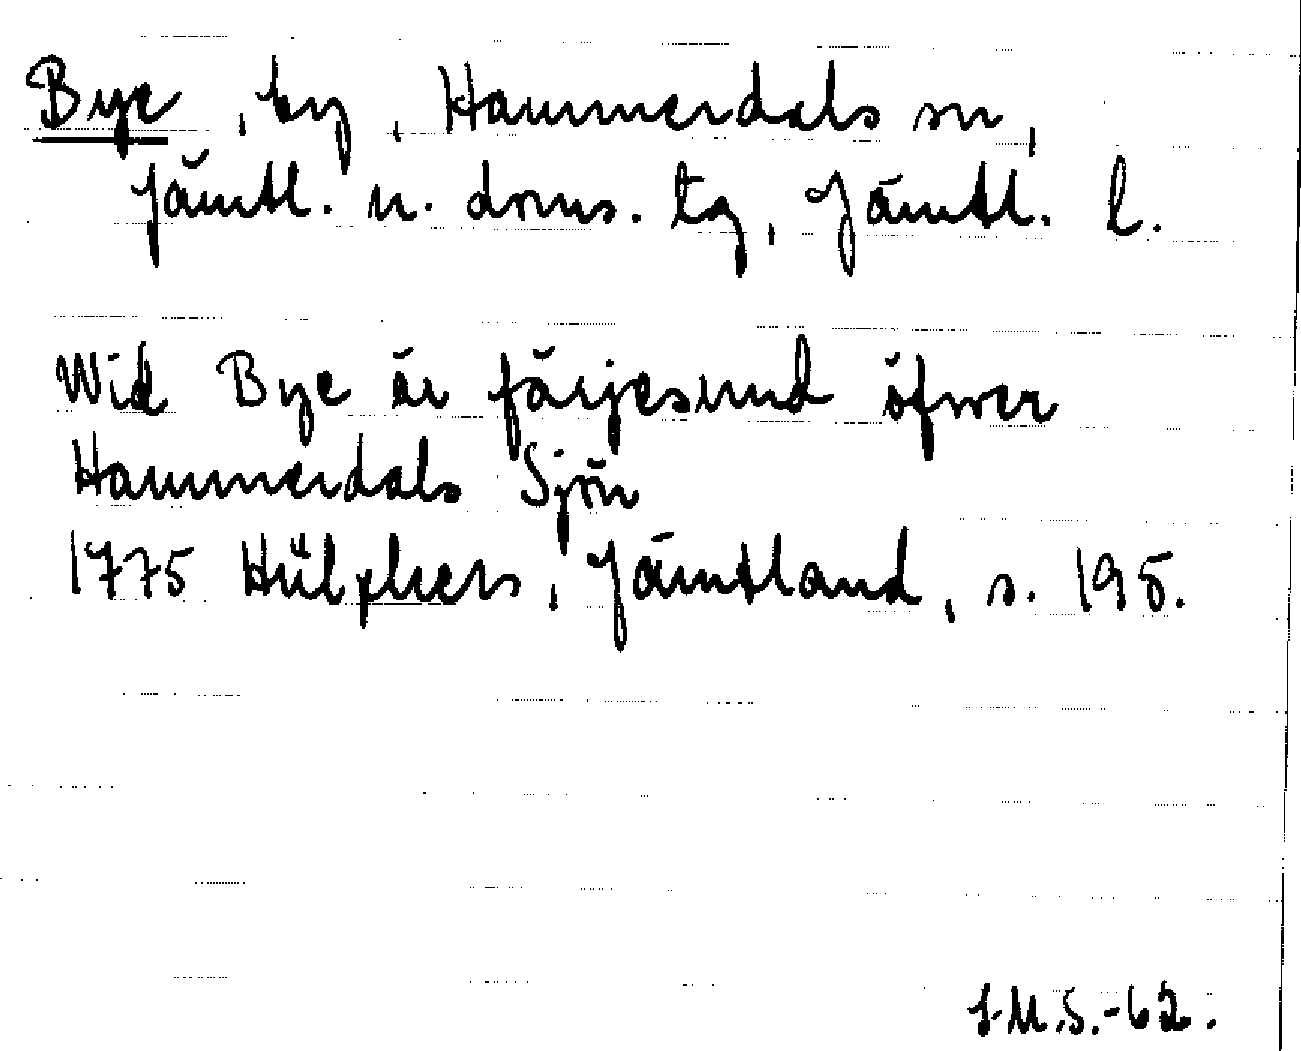 Bye, by, Hammerdals sn,
Jämtl. n. doms. tg, Jämtl. l.
Wid Bye är färjesund öfwer
Hammerdals Sjön
1775 Hülphers, Jämtland, s. 195.
I.M.S.-62.